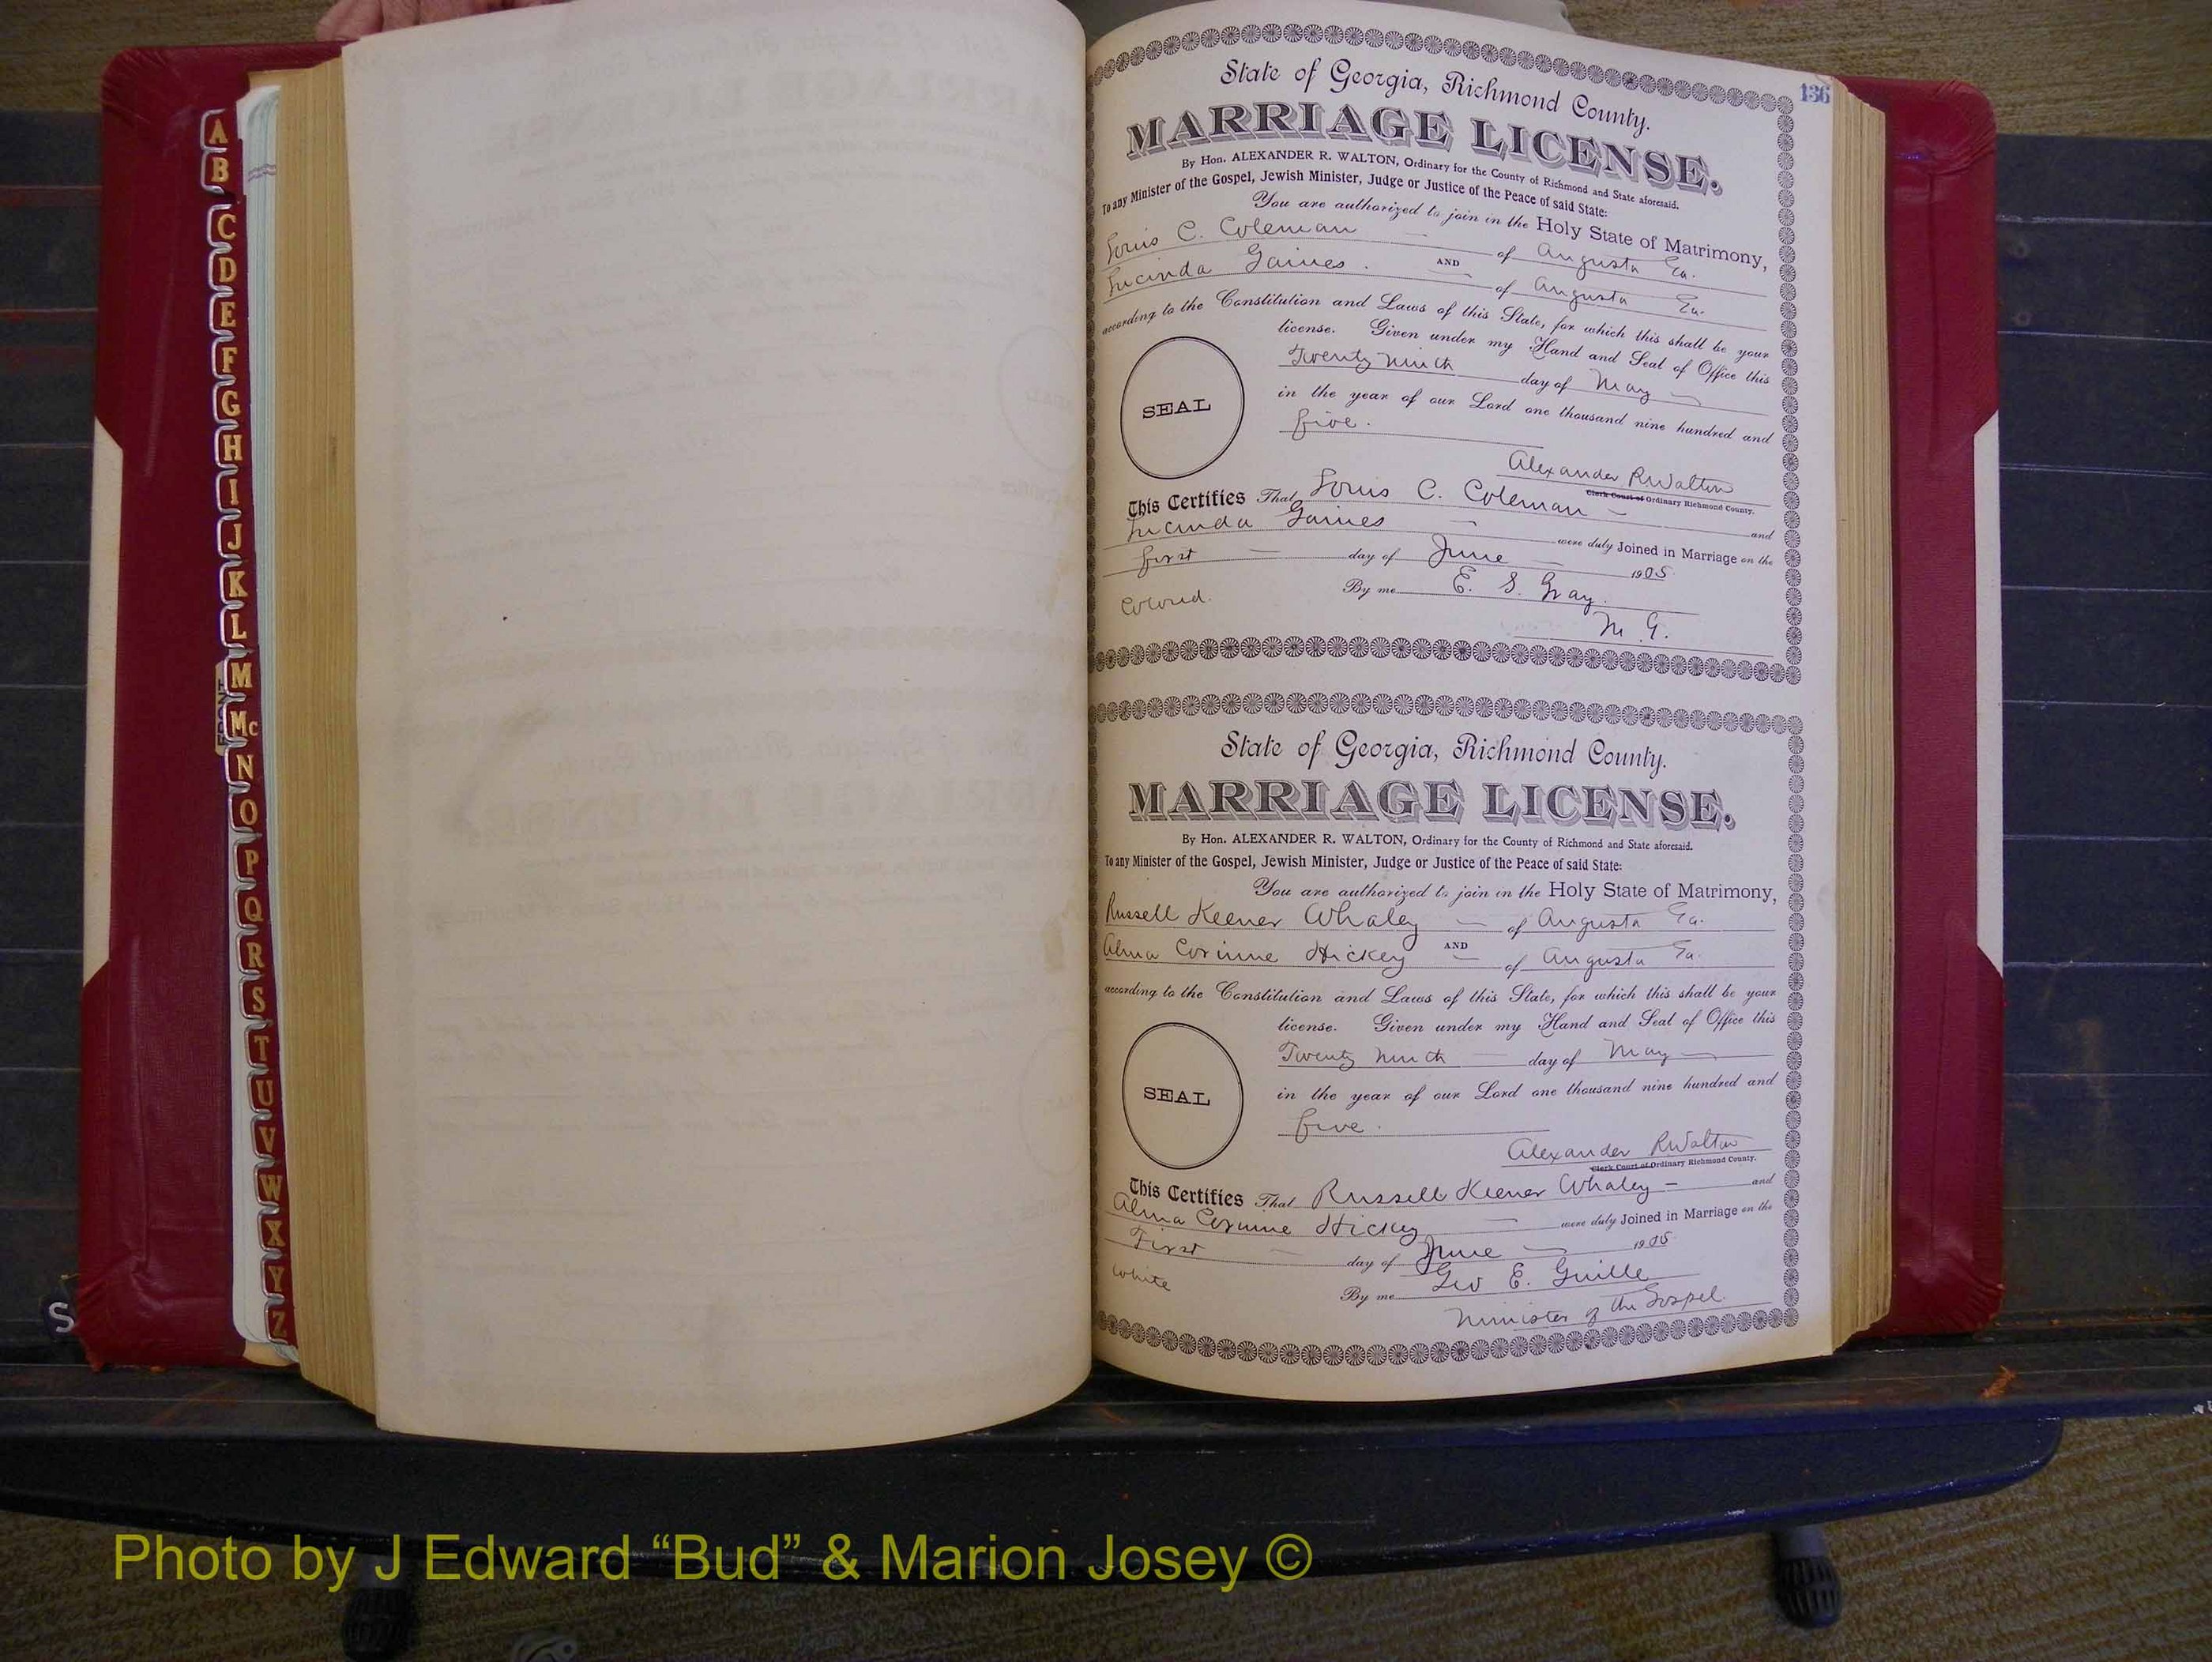 136
State of Georgia, Richmond County.
MARRIAGE LICENSE.
By Hon. ALEXANDER R. WALTON, Ordinary for the County of Richmond and State aforesaid.
To any Minister of the Gospel, Jewish Minister, Judge or Justice of the Peace of said State:
You are authorized to join in the Holy State of Matrimony,
Louis C. Coleman of Augusta Ga.
AND
Lucinda Gaines. of Augusta Ga.
according to the Constitution and Laws of this State, for which this shall be your
license. Given under my Hand and Seal of Office this
Twenty ninth day of May
in the year of our Lord one thousand nine hundred and
five.
SEAL
Alexander R Walton
Clerk Court of Ordinary Richmond County.
This Certifies That Louis C. Coleman and
Lucinda Gaines were duly Joined in Marriage on the
first day of June 1905.
Colored. By me E. S. Gray.
M. G.
State of Georgia, Richmond County.
MARRIAGE LICENSE.
By Hon. ALEXANDER R. WALTON, Ordinary for the County of Richmond and State aforesaid.
To any Minister of the Gospel, Jewish Minister, Judge or Justice of the Peace of said State:
You are authorized to join in the Holy State of Matrimony,
Russell Keener Whaley of Augusta Ga.
AND
Alma Corinne Hickey of Augusta Ga.
according to the Constitution and Laws of this State, for which this shall be your
license. Given under my Hand and Seal of Office this
Twenty ninth day of May
in the year of our Lord one thousand nine hundred and
five.
SEAL
Alexander R Walton
Clerk Court of Ordinary Richmond County.
This Certifies That Russell Keener Whaley and
Alma Corinne Hickey were duly Joined in Marriage on the
First day of June 1905
White By me Geo E. Guille
Minister of the Gospel.
A
B
C
D
E
F
G
H
I
J
K
L
M
Mc
N
O
P
Q
R
S
T
U
V
W
X
Y
Z
Photo by J Edward “Bud” & Marion Josey ©